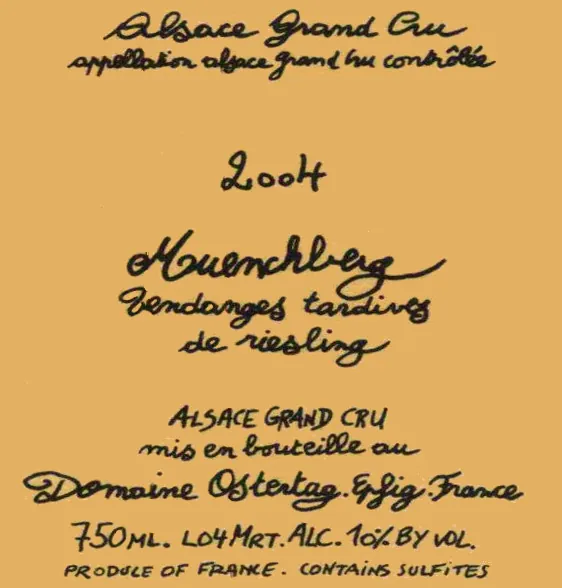 Alsace Grand Cru
appellation alsace grand cru contrôlée
2004
Muenchberg
Vendanges tardives
de riesling
ALSACE GRAND CRU
mis en bouteille au
Domaine Ostertag. Epfig. France
750ML. L04MRT. ALC. 10% BY VOL.
PRODUCE OF FRANCE. CONTAINS SULFITES